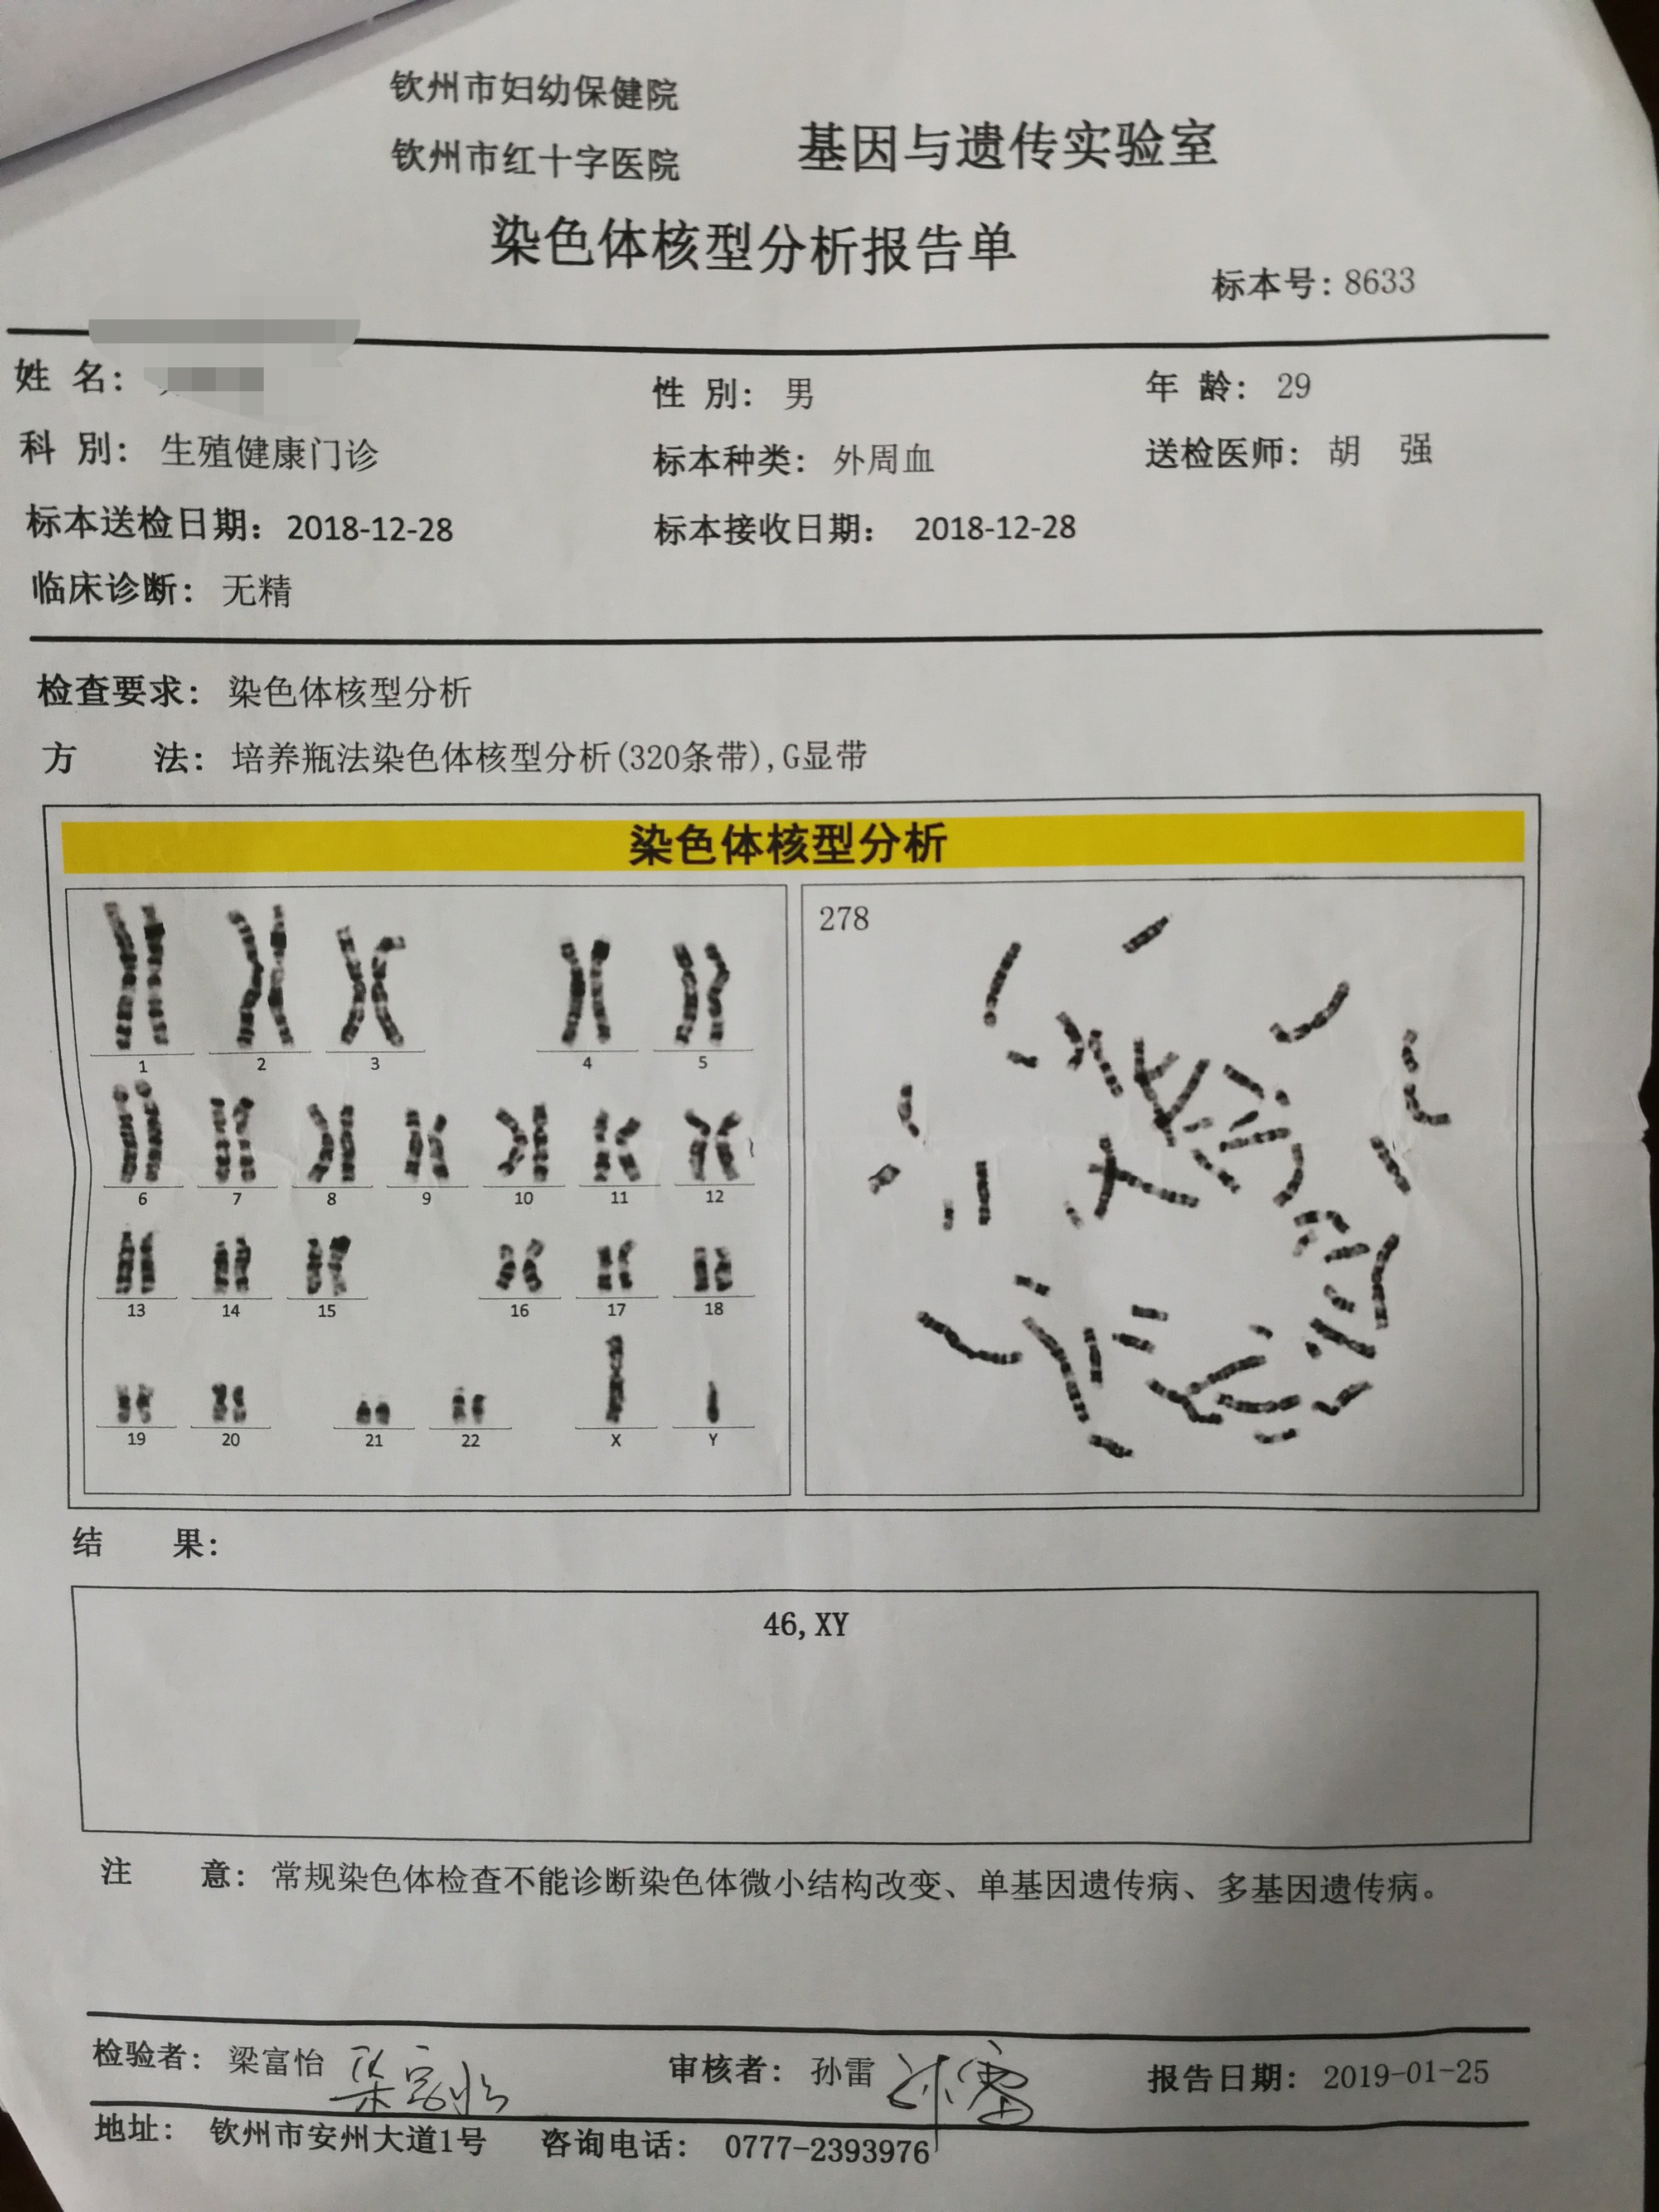 钦州市妇幼保健院
钦州市红十字医院 基因与遗传实验室
染色体核型分析报告单
标本号: 8633
姓 名:
性 別: 男
年 龄: 29
科 別: 生殖健康门诊
标本种类: 外周血
送检医师: 胡 强
标本送检日期: 2018-12-28
标本接收日期: 2018-12-28
临床诊断: 无精
检查要求: 染色体核型分析
方 法: 培养瓶法染色体核型分析(320条带),G显带
染色体核型分析
278
1 2 3 4 5
6 7 8 9 10 11 12
13 14 15 16 17 18
19 20 21 22 X Y
结 果:
46,XY
注 意: 常规染色体检查不能诊断染色体微小结构改变、单基因遗传病、多基因遗传病。
检验者: 梁富怡 梁富怡
审核者: 孙雷 孙雷
报告日期: 2019-01-25
地址: 钦州市安州大道1号 咨询电话: 0777-2393976